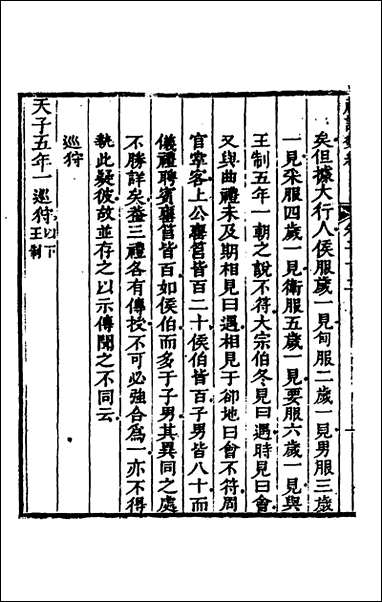 矣但據大行人侯服歲一見甸服二歲一見男服三歲
一見采服四歲一見衛服五歲一見要服六歲一見與
王制五年一朝之說不符大宗伯冬見曰遇時見曰會
又與曲禮未及期相見曰遇相見于卻地曰會不符周
官掌客上公甕筥皆百二十侯伯皆百子男皆八十而
儀禮聘賓甕筥皆百如侯伯而多于子男其異同之處
不勝詳矣葢三禮各有傳授不可必強合爲一亦不得
執此疑彼故並存之以示傳聞之不同云
巡狩
天子五年一巡狩以下王制